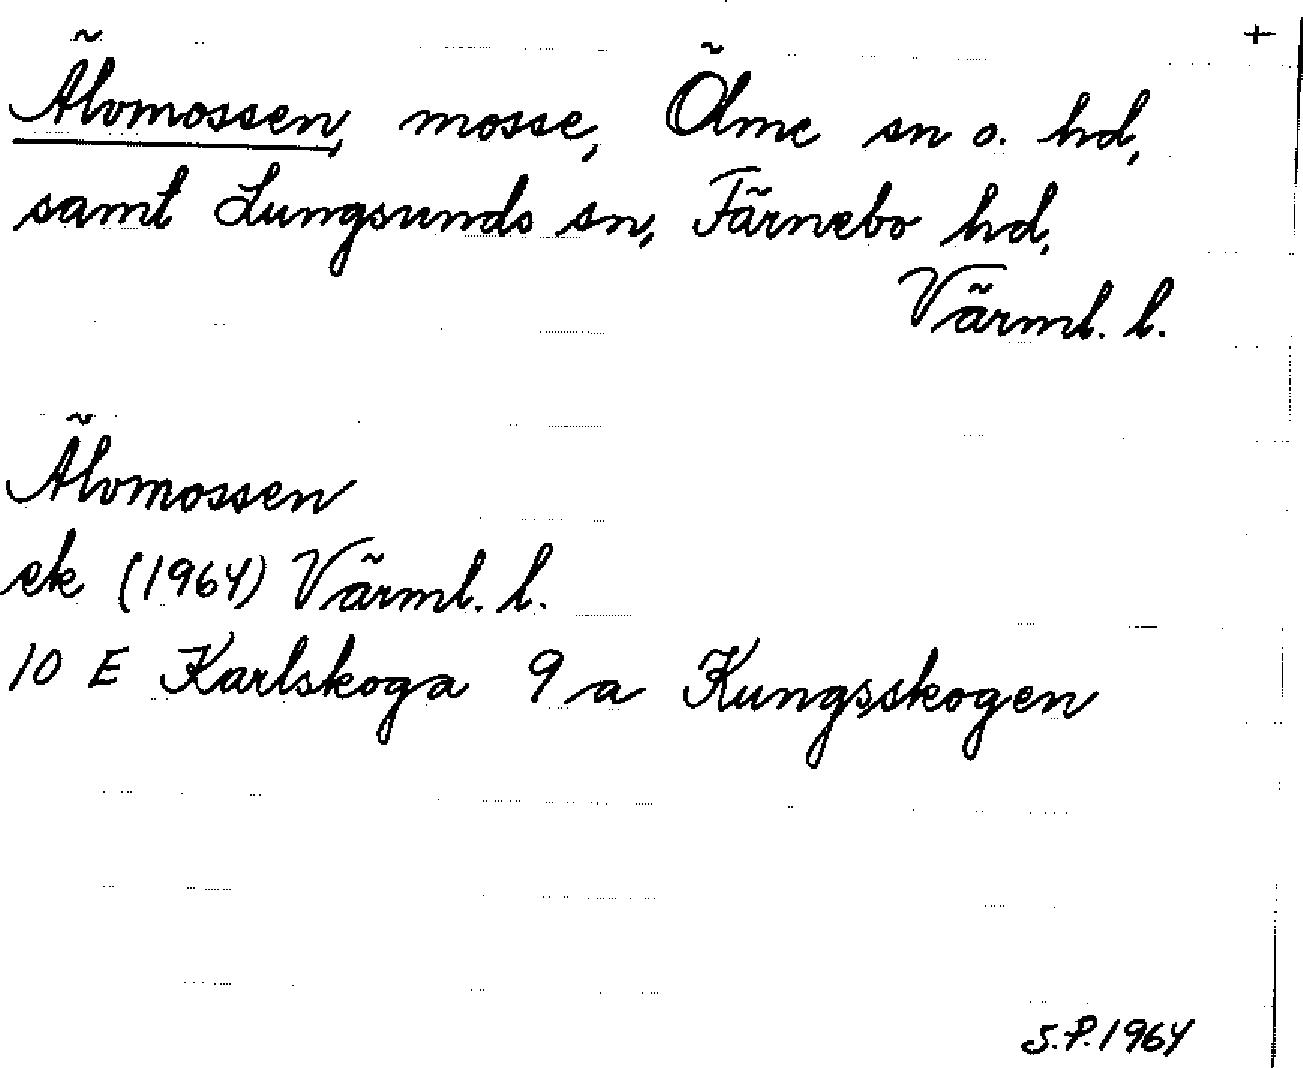 +
Älvmossen, mosse, Ölme sn o. hd,
samt Lungsunds sn, Färnebo hd,
Värml. l.
Älvmossen
ek (1964) Värml. l.
10 E Karlskoga 9 a Kungsskogen
S.P. 1964